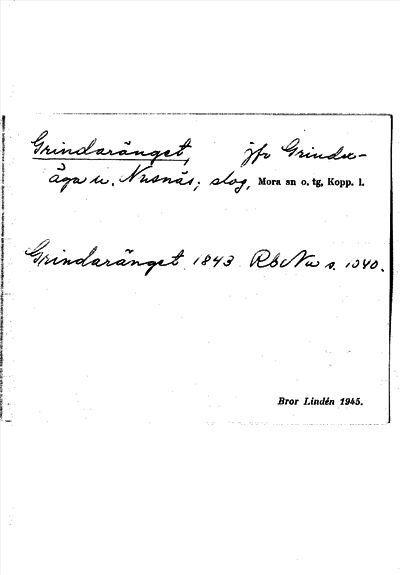 Grindaränget, jfr Grinda-
äga u. Nusnäs; slog, Mora sn o. tg, Kopp. l.
Grindaränget 1843 RbNu s. 1040.
Bror Lindén 1945.